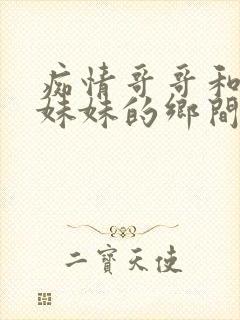 痴情哥哥和
妹妹的鄉間
二寶天使